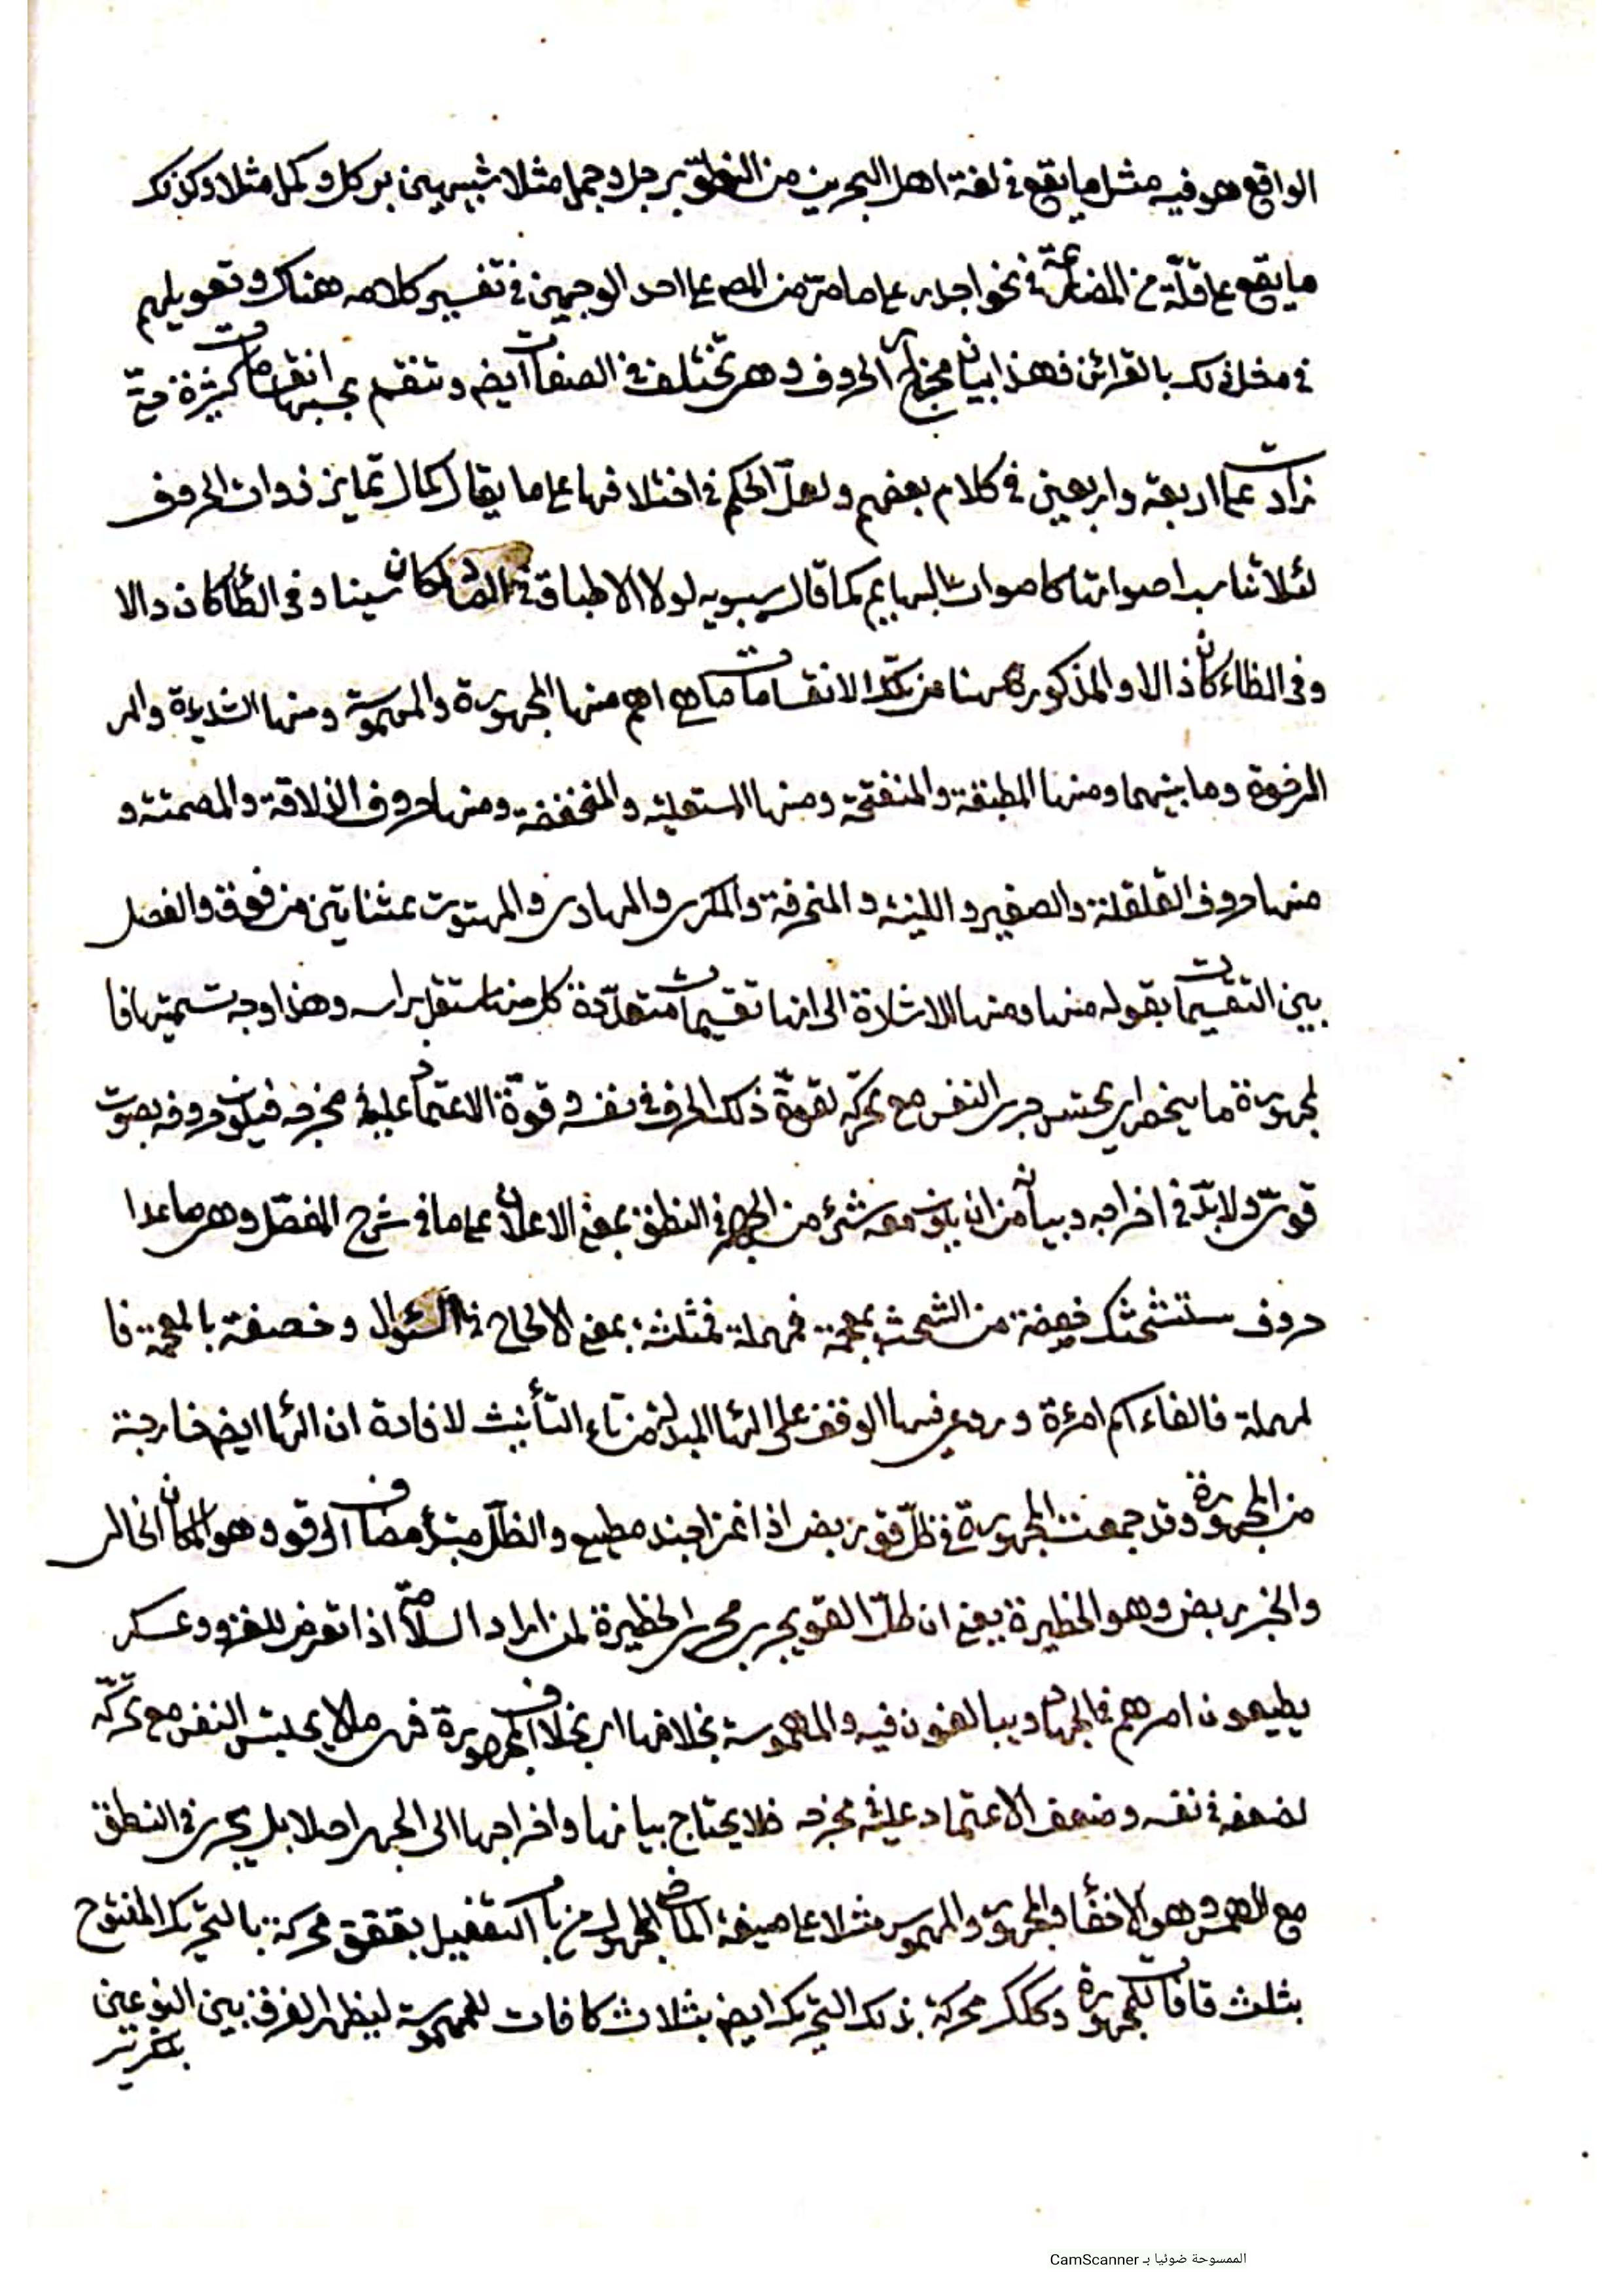 الواقع هو فيه مثل ما يقع في لغة اهل البحرين من النطق برجل وجمل مثلا شبيهين بركل وكمل مثلا وكذلك
ما يقع على قلة من المضارعة في نحو اجدر على ما مر من المص على احد الوجهين في تفسير كلامه هناك وتعويلهم
في مخل ذلك بالقرائن فهذا بيان مخارج الحروف وهى تختلف في الصفات ايضا وتنقسم بحسبها انقسامات كثيرة حتى
زادت على اربعة واربعين في كلام بعضهم ولعل الحكم في اختلافها على ما يقال كمال تمايز ذوات الحروف
لئلا تناسب اصواتها كاصوات البهايم كما قال سيبويه لولا الاطباق في الصاد لكان سينا وفى الطاء كان دالا
وفى الظاء كان ذالا والمذكورة ههنا من تلك الانقسامات ما هي اهم منها المجهورة والمهموسة ومنها الشديدة والر
الرخوة وما بينهما ومنها المطبقة والمنفتحة ومنها المستعلية والمنخفضة ومنها حروف الذلاقة والمصمتة و
منها حروف القلقلة والصفير واللينة والمنحرفة والمكرر والهاوى والمهتوت بمثناتين من فوق والفصل
بين التقسيمات بقوله منها ومنها للاشارة الى انها تقسيمات متعددة كل منها مستقل براسه وهذا وجه تسميتها فا
لمجهورة ما ينحصر اى يحتبس جرى النفس مع تحركه لقوة ذلك الحرف في نفسه وقوة الاعتماد عليه في مخرجه فيكون حروفه بصوت
قوى ولا بد في اخراجه وبيانه من ان يكون معه شئ من الجهر في النطق بمعنى الاعلان على ما في شرح المفصل وهى ما عدا
حروف ستشحثك خصفة من الشحث بمعجمة فمهملة فمثلثة بمعنى الالحاح في السؤال وخصفة بالمعجمة فا
لمهملة فالفاء اسم امرءة وروعى فيها الوقف على الهاء المبدلة من تاء التأنيث لافادة ان الهاء ايضا خارجة
من المجهورة وقد جمعت المجهورة في ظل قو ربض اذا غزا جند مطيع والظل مبتدأ مضاف الى قو وهو المكان الخالى
والخبر ربض وهو الحظيرة يعنى ان ظل القو يجرى مجرى الحظيرة لمن اراد السلامة اذا تعرض للغزو وعسكر
يطيعون امرهم في الجهاد ويبالغون فيه والمهموسة بخلافها اى بخلاف المجهورة فهى ما لا يحتبس النفس مع تحركه
لضعفه في نفسه وضعف الاعتماد عليه في مخرجه فلا يحتاج بيانها واخراجها الى الجهر اصلا بل يجرى في النطق
مع الهمس وهو الاخفاء والمجهورة والمهموس مثلا على صيغة الماضي المجهول من باب التفعيل بققق محركة بالتحريك المفتوح
بثلث قافات للمجهورة وككك محركة بذلك التحريك ايضا بثلاث كافات للمهموسة ليظهر الفرق بين النوعين
الممسوحة ضوئيا بـ CamScanner